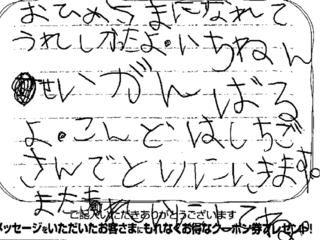 おひめさまになれて
うれしかたよ。いちねん
せいがんばる
よ。こんどはしちご
さんでとりにいきます。
またきれいにしてね。
ご記入いただきありがとうございます
メッセージをいただいたお客さまにもれなくお得なクーポン券プレゼント!